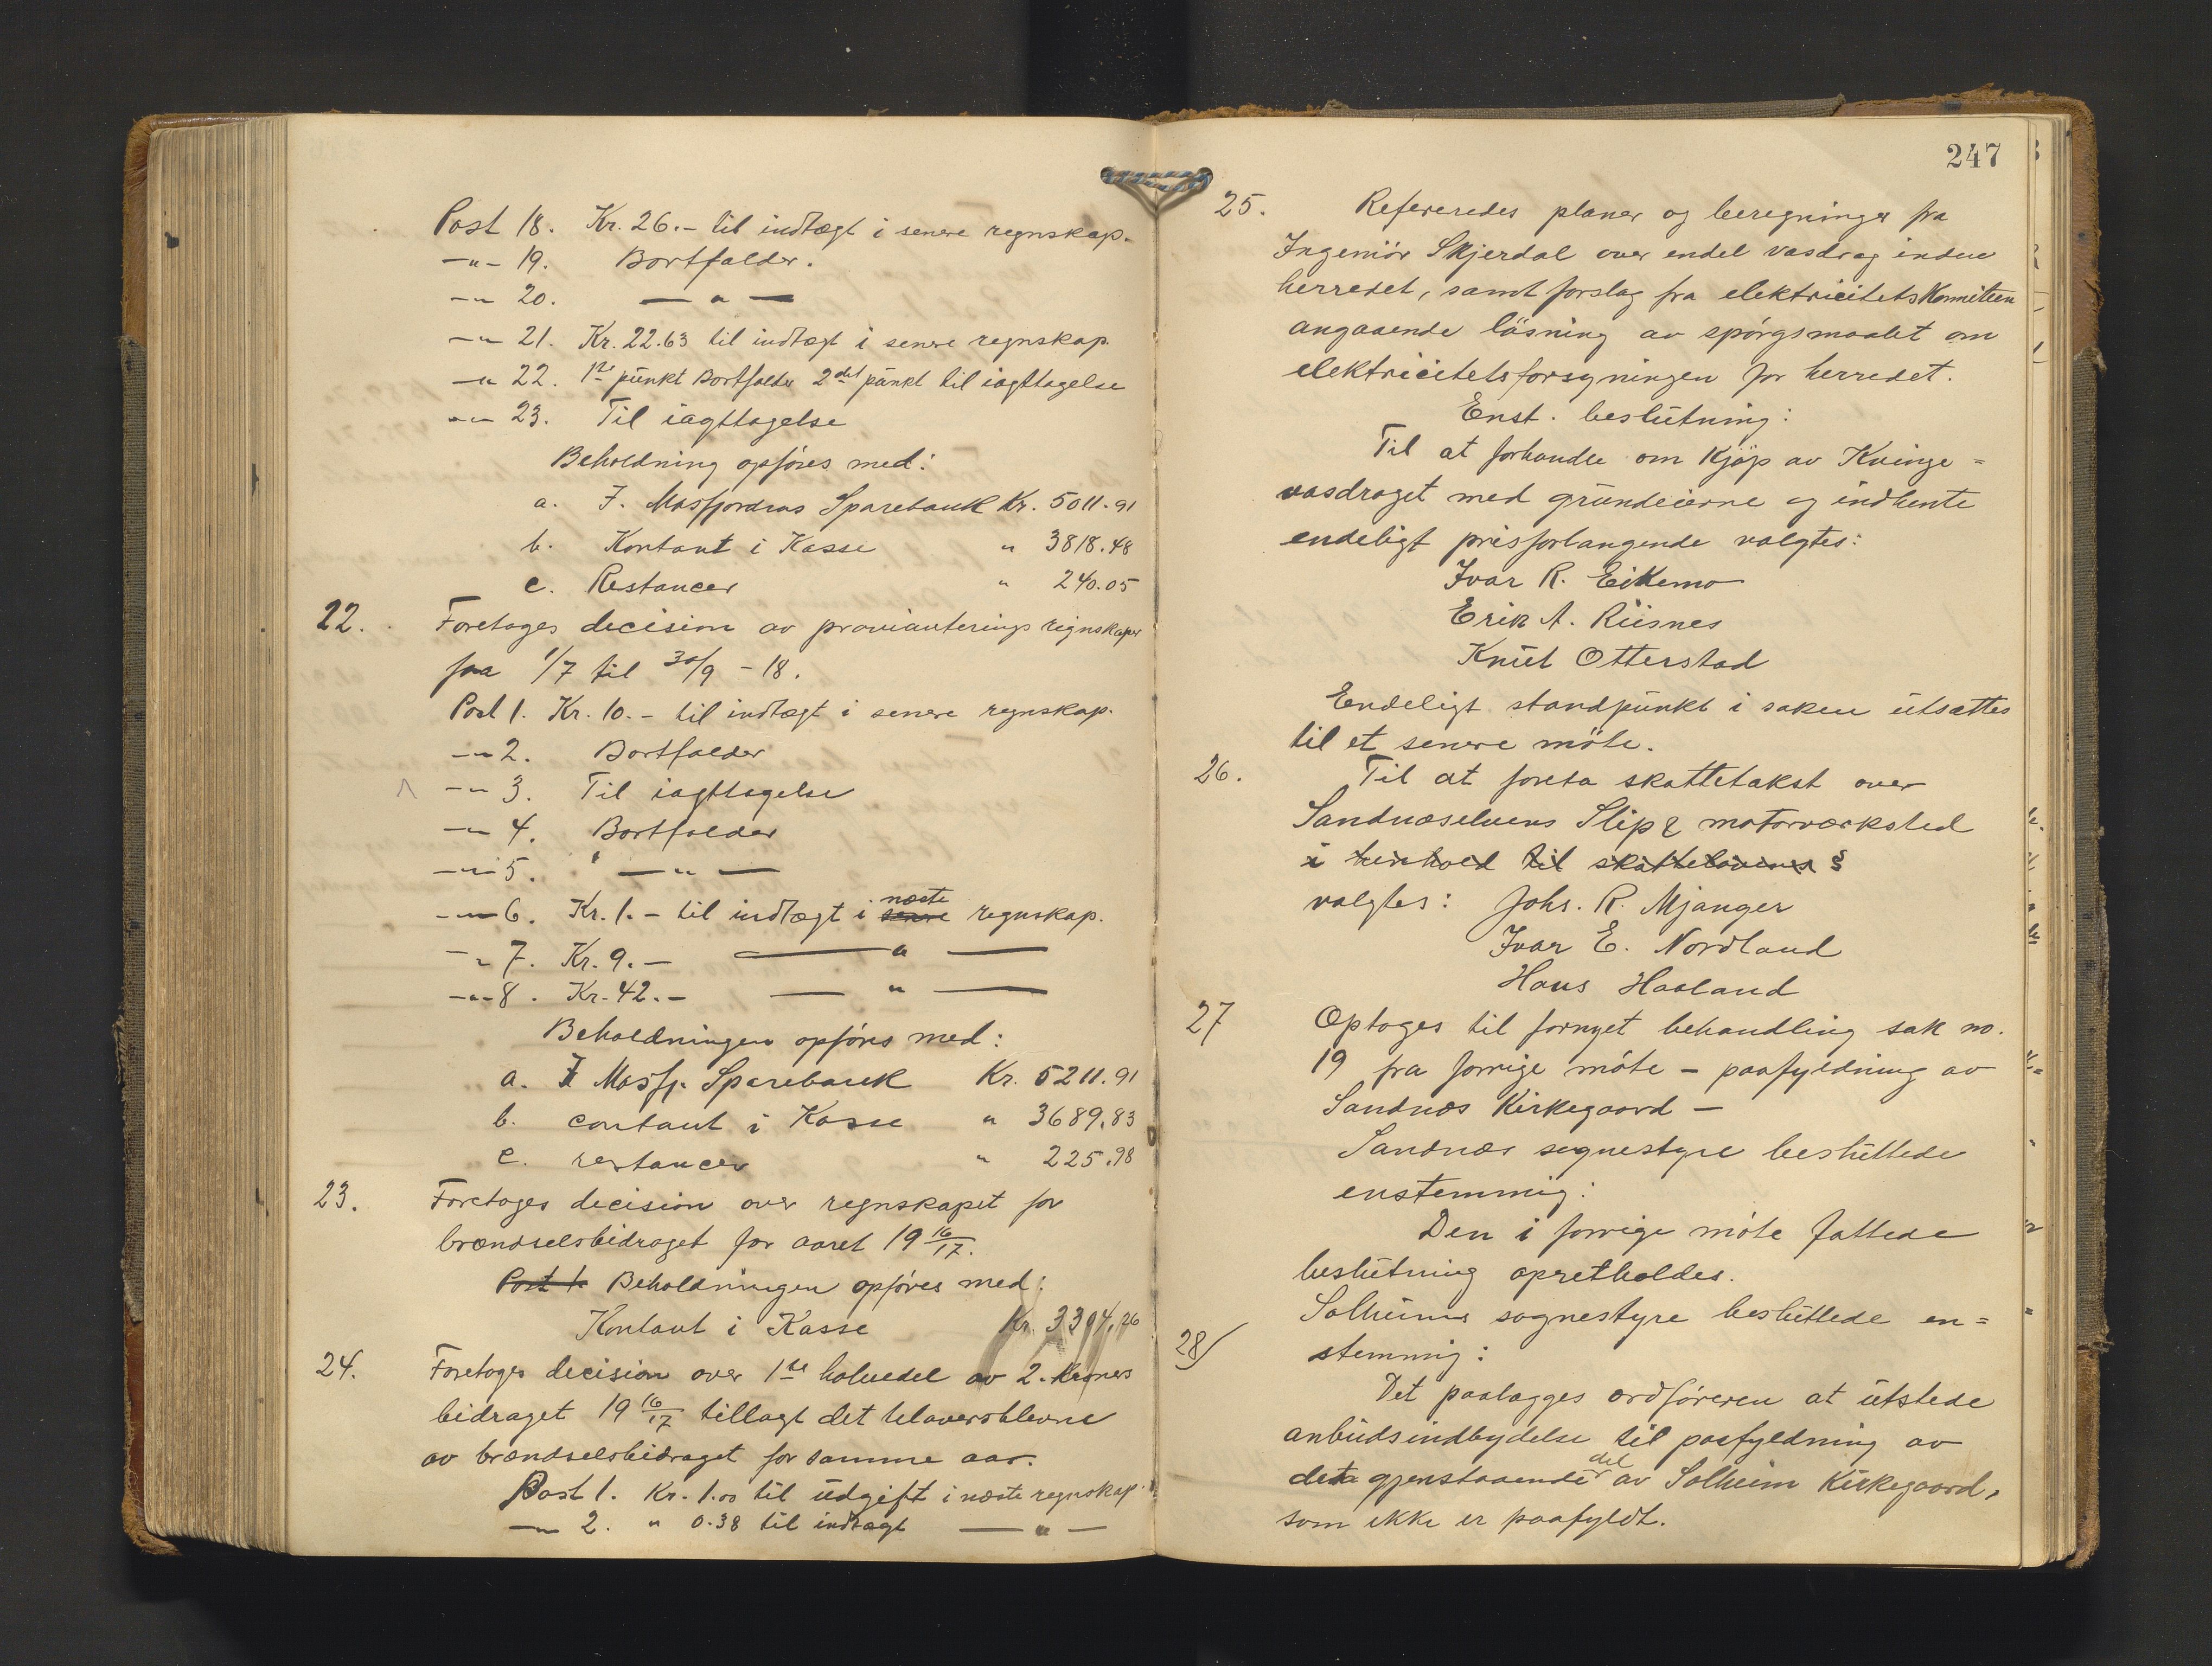 Post 18. Kr. 26.- til indtægt i senere regnskap.
-"- 19. Bortfalder.
-"- 20. — " —
-"- 21. Kr. 22.63 til indtægt i senere regnskap.
-" 22. 1ste punkt Bortfalder 2det punkt til iagttagelse
-"- 23. Til iagttagelse
Beholdning opføres med:
a. I. Masfjordens Sparebank Kr. 5011.91
b. Kontant i Kasse " 3818.48
c. Restancer " 240.05
22. Foretages decision av provianterings regnskaper
fra 1/7 til 30/9 - 18.
Post 1. Kr. 10.- til indtægt i senere regnskap.
-"- 2. Bortfalder
-"- 3. Til iagttagelse
-"- 4. Bortfalder
-"- 5. — " —
-"- 6. Kr. 1.- til indtægt i senere næste regnskap.
-"- 7. Kr. 9.- — " —
-"- 8. Kr. 42.- — " —
Beholdningen opføres med:
a. I Masfj. Sparebank Kr. 5211.91
b. contant i Kasse " 3689,83
c. restancer " 225.98
23. Foretages decision over regnskapet for
brændselsbidraget for aaret 19 16/17.
Post 1. Beholdningen opføres med:
Kontant i Kasse Kr. 3394,26
24. Foretages decision over 1ste halvedel av 2. Kroners
bidraget 19 16/17 tillagt det tiloversblevne
av brændselsbidraget for samme aar.
Post 1. Kr. 1.00 til udgift i næste regnskap.
-"- 2. " 0.38 til indtægt — " —
247
25. Refereredes planer og beregninger fra
Ingeniör Skjerdal over endel vasdrag inden
herredet, samt forslag fra elektricitetsKomiteen
angaaende läsning av spörgsmaalet om
elektricitetsforsyningen for herredet.
Enst. beslutning:
Til at forhandle om Kjöp av Kvinge=
vasdraget med grundeierne og indhente
endeligt prisforlangende valgtes:
Ivar R. Eikemo
Erik A. Riisnes
Knut Otterstad
Endeligt standpunkt i saken utsættes
til et senere möte.
26. Til at foreta skattetakst over
Sandnæselvens Slip & motorværksted
i henhold til skattelovens §
valgtes: Johs. R. Mjanger
Ivar E. Nordland
Hans Haaland
27 Optages til fornyet behandling sak no.
19 fra forrige möte - paafyldning av
Sandnæs Kirkegaard -
Sandnæs sognestyre besluttede
enstemmig:
Den i forrige möte fattede
beslutning opretholdes.
Solheims sognestyre besluttede en=
28/ stemmig:
Det paalægges ordföreren at utstede
anbudsindbydelse til paafyldning av
den gjenstaaende del av Solheim Kirkegaard,
som ikke er paafyldt.